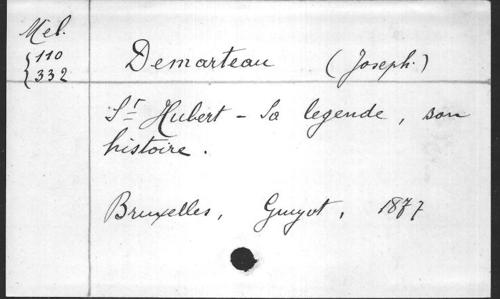 Mel.
110
332
Demarteau (Joseph.)
St Hubert - Sa legende, son
histoire.
Bruxelles, Guyot, 1877